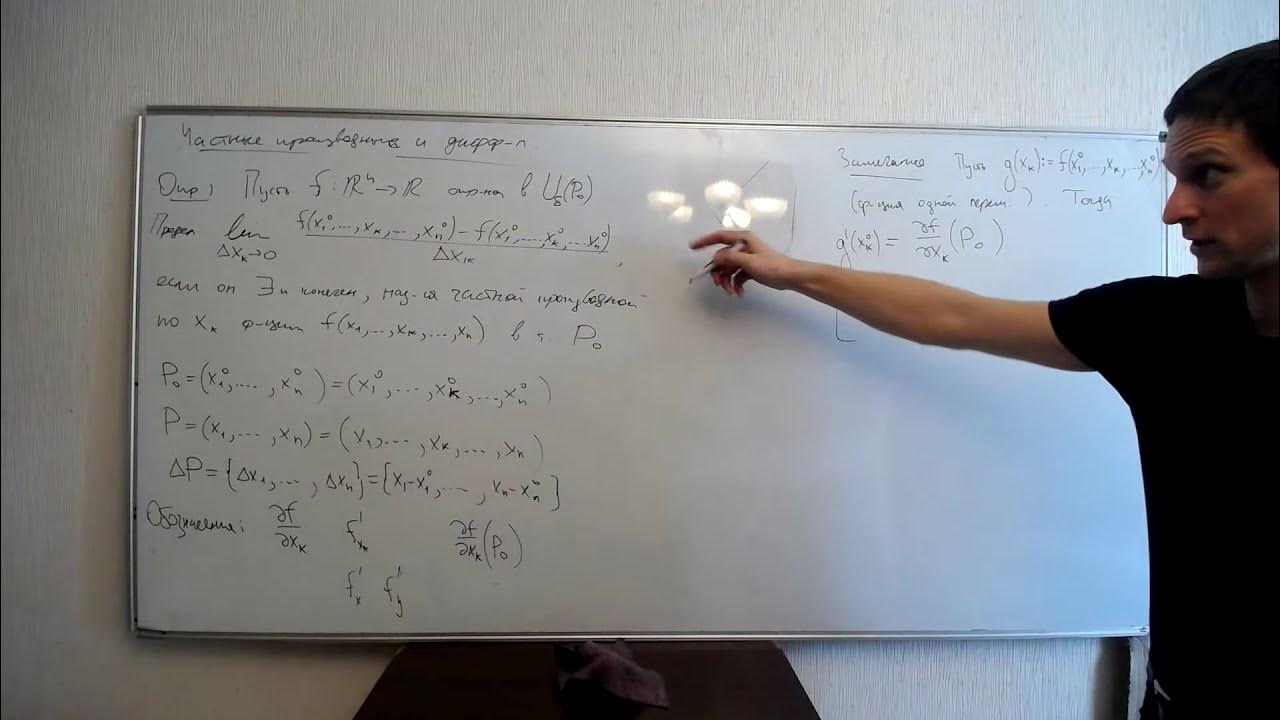 Частные производные и дифф-л
Опр 1 Пусть f: ℝⁿ → ℝ опр-на в U_δ(P₀)
Предел lim_{Δxₖ→0} (f(x₁⁰,...,xₖ,...,xₙ⁰) − f(x₁⁰,...,xₖ⁰,...,xₙ⁰))/Δxₖ ,
если он ∃ и конечен, наз-ся частной производной
по xₖ ф-ции f(x₁,...,xₖ,...,xₙ) в т. P₀
P₀ = (x₁⁰,....,xₙ⁰) = (x₁⁰,....,xₖ⁰,...,xₙ⁰)
P = (x₁,...,xₙ) = (x₁,....,xₖ,...,xₙ)
ΔP = {Δx₁,...,Δxₙ} = {x₁−x₁⁰,...,xₙ−xₙ⁰}
Обозначения: ∂f/∂xₖ f'_{xₖ} ∂f/∂xₖ(P₀)
f'_x f'_y
Замечание Пусть g(xₖ):= f(x₁⁰,...,xₖ,...,xₙ⁰)
(ф-ция одной перем.). Тогда
g'(xₖ⁰) = ∂f/∂xₖ(P₀)